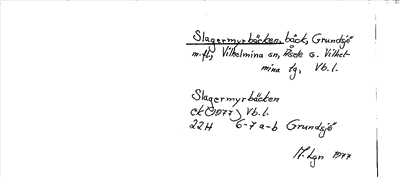 Slagermyrbäcken, bäck, Grundsjö
m.fl., Vilhelmina sn, Åsele o. Vilhel-
mina tg, Vb. l.
Slagermyrbäcken
ek (1977) Vb. l.
22H 6-7 a-b Grundsjö
M. Lgn 1977